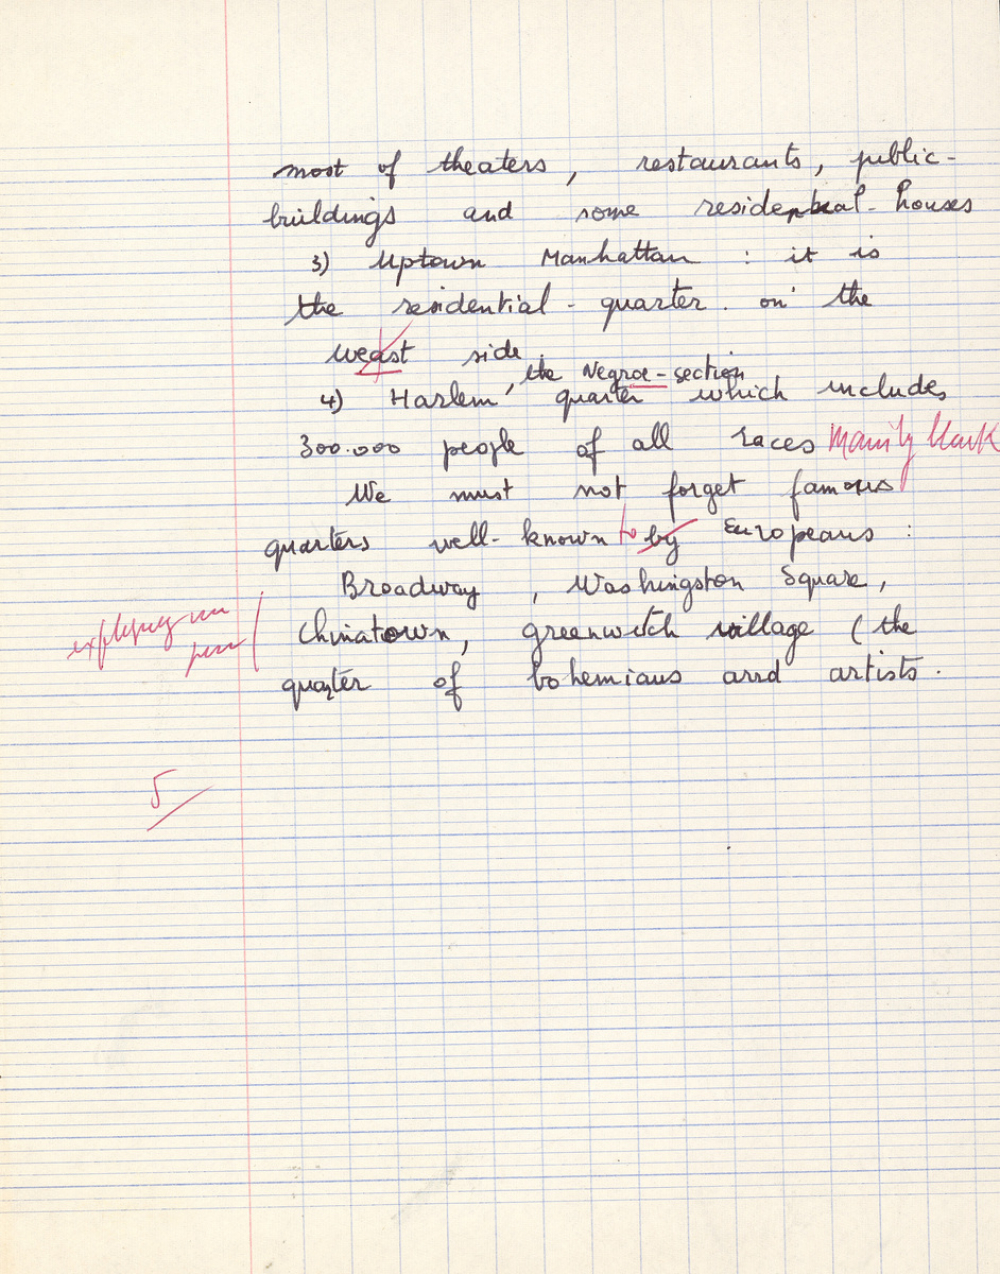 most of theaters, restaurants, public-
buildings and some residential-houses
3) Uptown Manhattan : it is
the residential-quarter. on the
weast side.
the Negroe-section
4) Harlem, quarter which includes
300.000 people of all races Mainly black
We must not forget famous
quarters well-known to by Europeans :
Broadway, Washingston Square,
Chinatown, greenwitch village (the
expliquez un
peu
quarter of bohemians and artists.
5